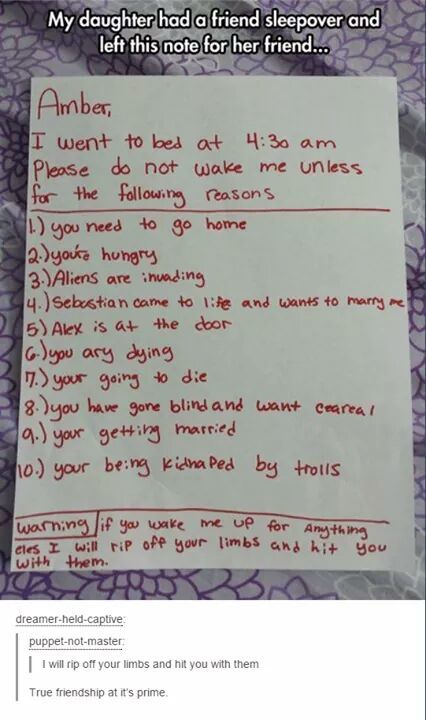 My daughter had a friend sleepover and
left this note for her friend...
Amber,
I went to bed at 4:30 am
Please do not wake me unless
for the following reasons
1.) you need to go home
2.) you're hungry
3.) Aliens are invading
4.) Sebastian came to life and wants to marry me
5) Alex is at the door
6.) you ary dying
7.) your going to die
8.) you have gone blind and want ceareal
9.) your getting married
10.) your being kidnaPed by trolls
warning if you wake me up for Anything
eles I will rip off your limbs and hit you
with them.
dreamer-held-captive:
puppet-not-master:
I will rip off your limbs and hit you with them
True friendship at it's prime.